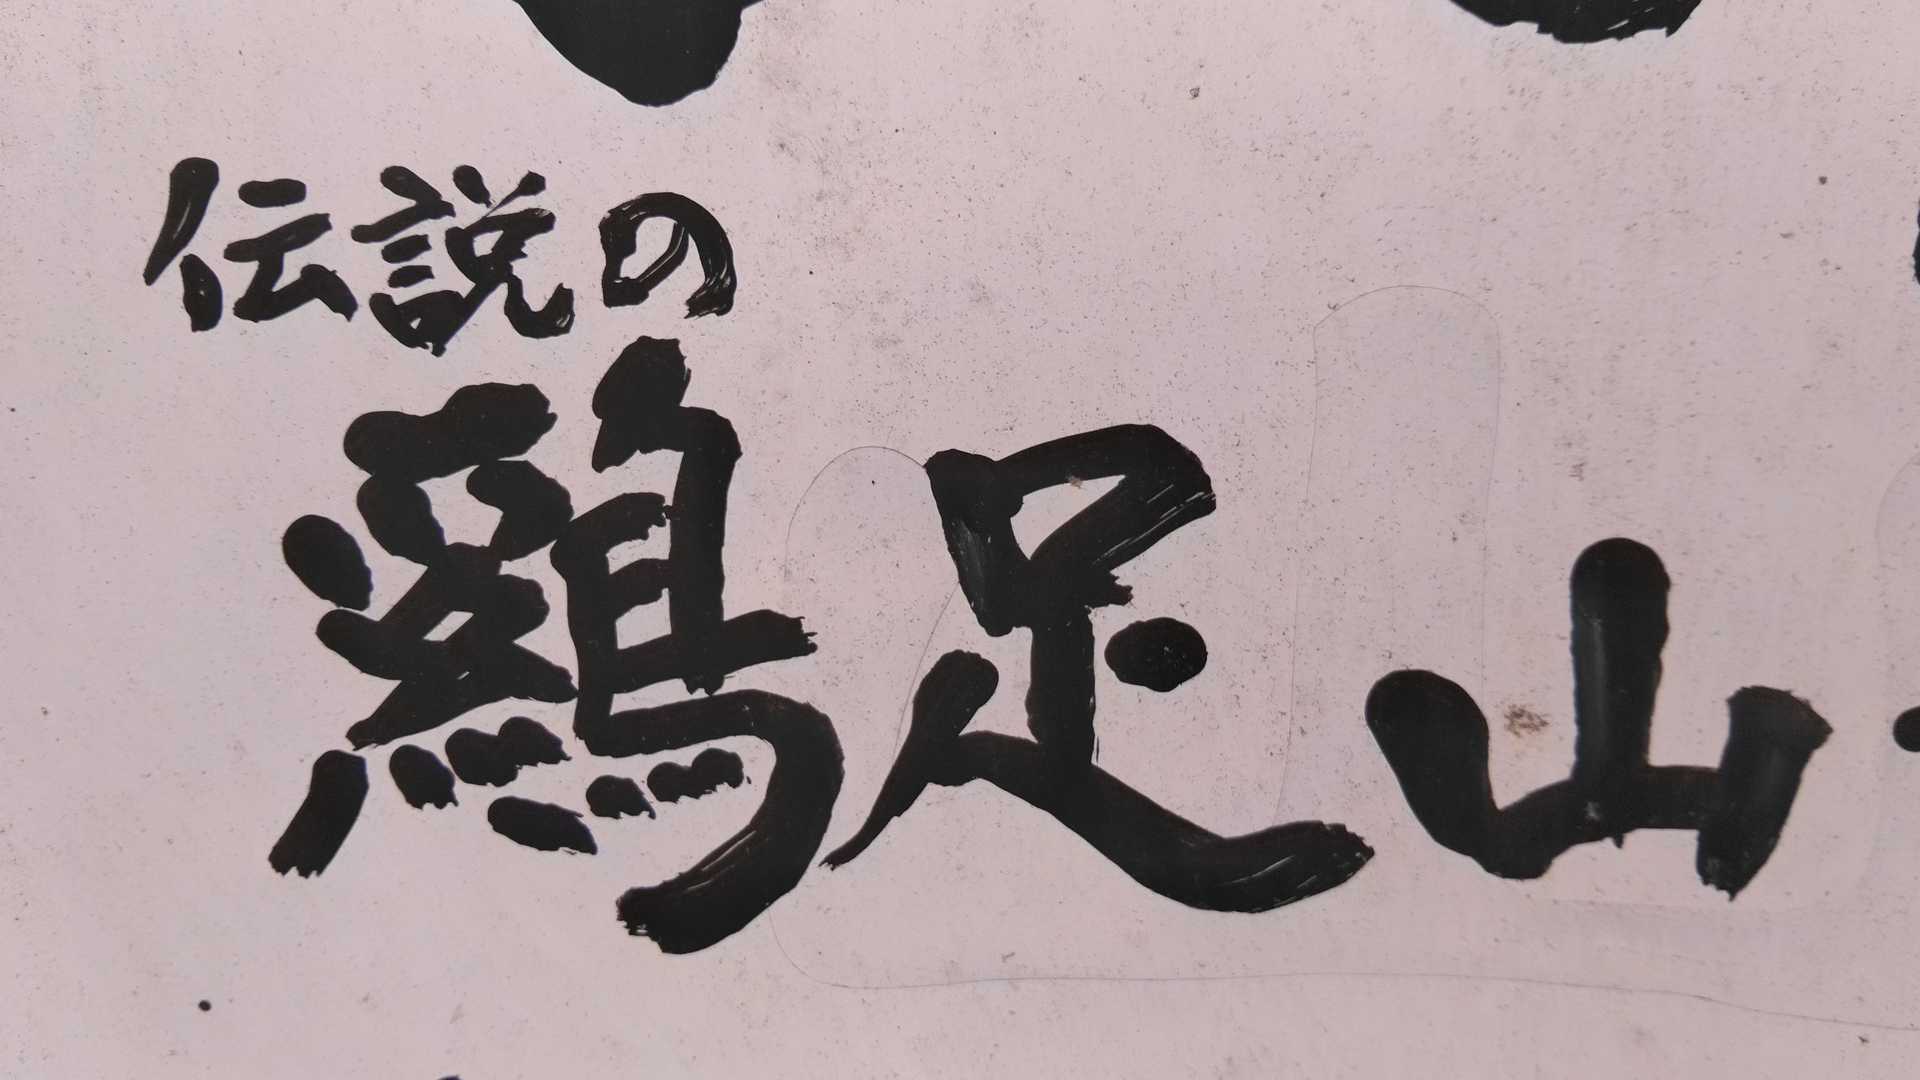 伝説の
鶏足山